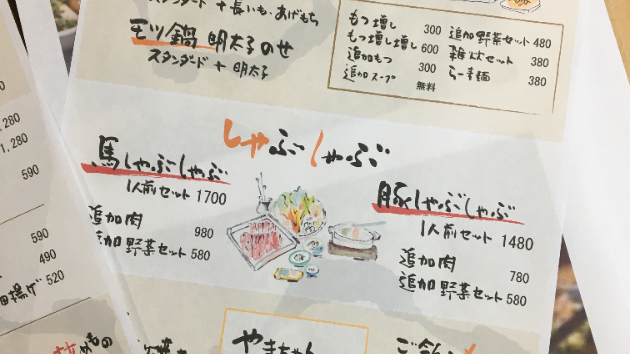 スタンダード + 長いも、あげもち
モツ鍋 明太子のせ
スタンダード + 明太子
もつ増し 300
もつ増し増し 600
追加もつ 300
追加スープ 無料
追加野菜セット 480
雑炊セット 380
らー麺 380
しゃぶしゃぶ
馬しゃぶしゃぶ
1人前セット 1700
追加肉 980
追加野菜セット 580
豚しゃぶしゃぶ
1人前セット 1480
追加肉 780
追加野菜セット 580
1,280
1,280
590
590
490
田揚げ 520
やまちゃん
ご飯